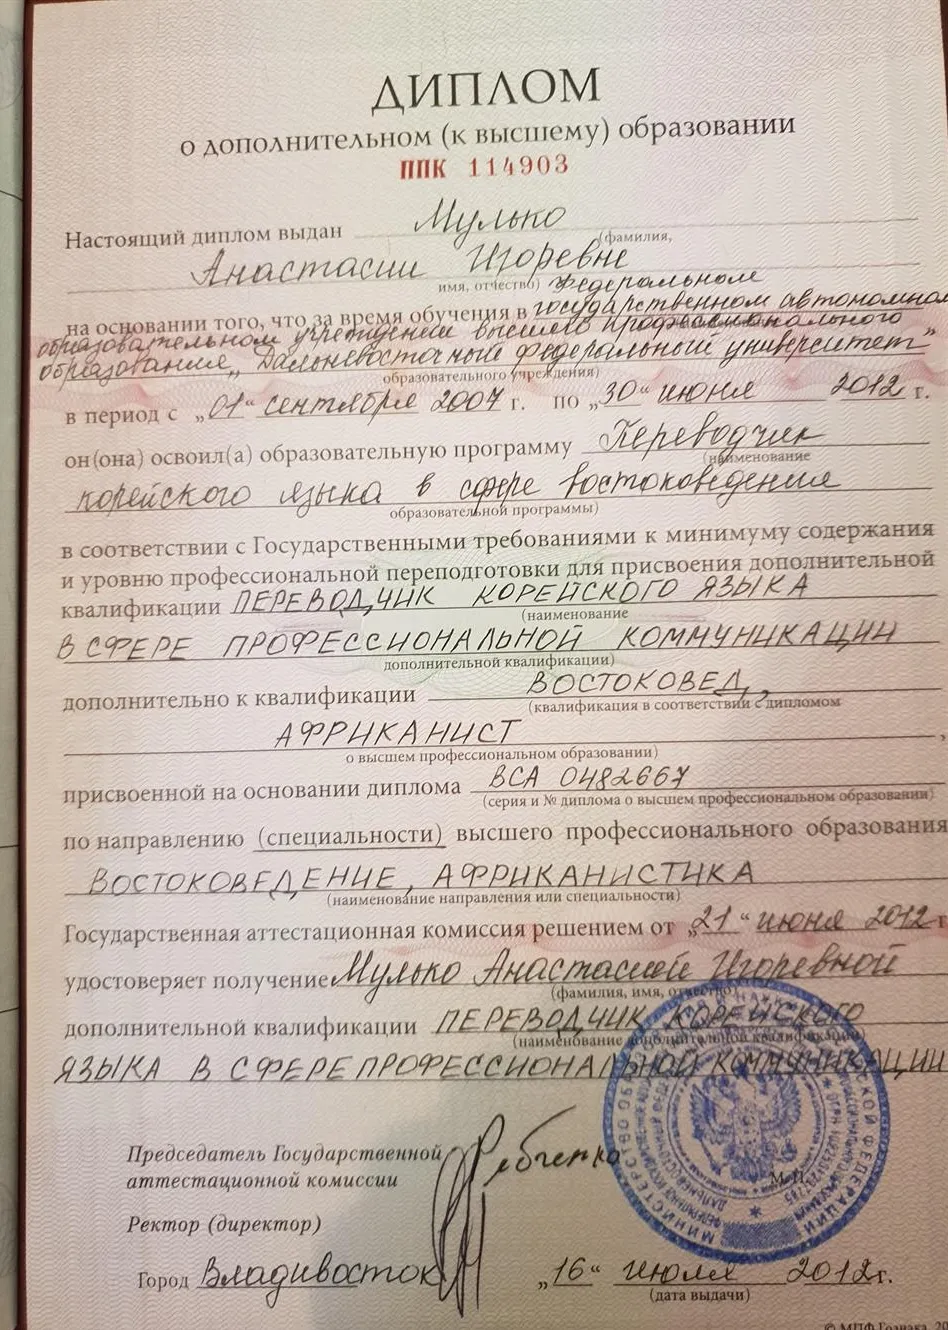 ДИПЛОМ
о дополнительном (к высшему) образовании
ППК 114903
Настоящий диплом выдан Мулько
(фамилия,
Анастасии Игоревне
имя, отчество)
на основании того, что за время обучения в Федеральном
государственном автономном
образовательном учреждении высшего профессионального
образования „Дальневосточный федеральный университет"
образовательного учреждения)
в период с „01“ сентября 2007 г. по „30“ июня 2012 г.
он(она) освоил(а) образовательную программу Переводчик
(наименование
корейского языка в сфере востоковедения
образовательной программы)
в соответствии с Государственными требованиями к минимуму содержания
и уровню профессиональной переподготовки для присвоения дополнительной
квалификации ПЕРЕВОДЧИК КОРЕЙСКОГО ЯЗЫКА
(наименование
В СФЕРЕ ПРОФЕССИОНАЛЬНОЙ КОММУНИКАЦИИ
дополнительной квалификации)
дополнительно к квалификации ВОСТОКОВЕД,
(квалификация в соответствии с дипломом
АФРИКАНИСТ ,
о высшем профессиональном образовании)
присвоенной на основании диплома ВСА 0482667
(серия и № диплома о высшем профессиональном образовании)
по направлению (специальности) высшего профессионального образования
ВОСТОКОВЕДЕНИЕ, АФРИКАНИСТИКА
(наименование направления или специальности)
Государственная аттестационная комиссия решением от „21“ июня 2012 г
удостоверяет получение Мулько Анастасией Игоревной
(фамилия, имя, отчество)
дополнительной квалификации ПЕРЕВОДЧИК КОРЕЙСКОГО
(наименование дополнительной квалификации)
ЯЗЫКА В СФЕРЕ ПРОФЕССИОНАЛЬНОЙ КОММУНИКАЦИИ
Председатель Государственной
аттестационной комиссии
Ректор (директор)
М.П.
Город Владивосток „16“ июля 2012 г.
(дата выдачи)
© МПФ Гознака, 20